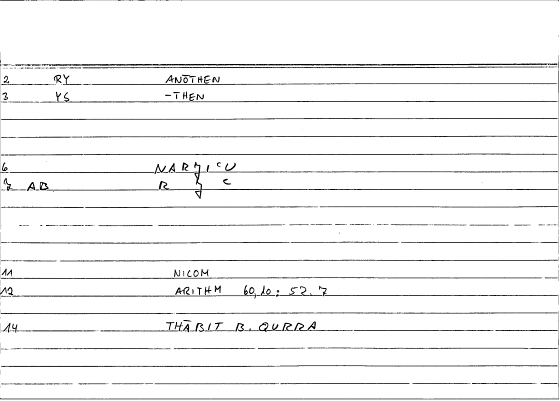 2 RY ANŌTHEN
3 YS -THEN
6
7 AB R C
11 NICOM
12 ARITHM 60,10; 52.7
14 THĀBIT B. QURRA